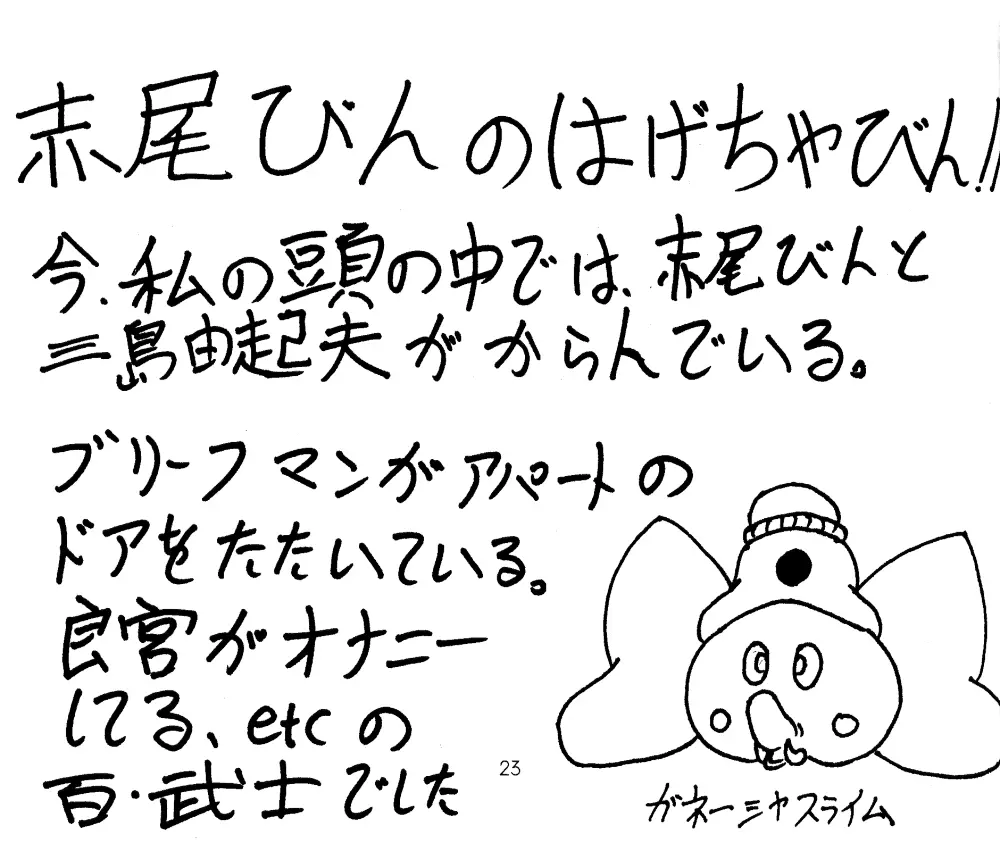 赤尾びんのはげちゃびん!!
今、私の頭の中では、赤尾びんと
三島由起夫がからんでいる。
ブリーフマンがアパートの
ドアをたたいている。
良宮がオナニー
してる、etcの
百・武士でした
23
ガネーシャスライム